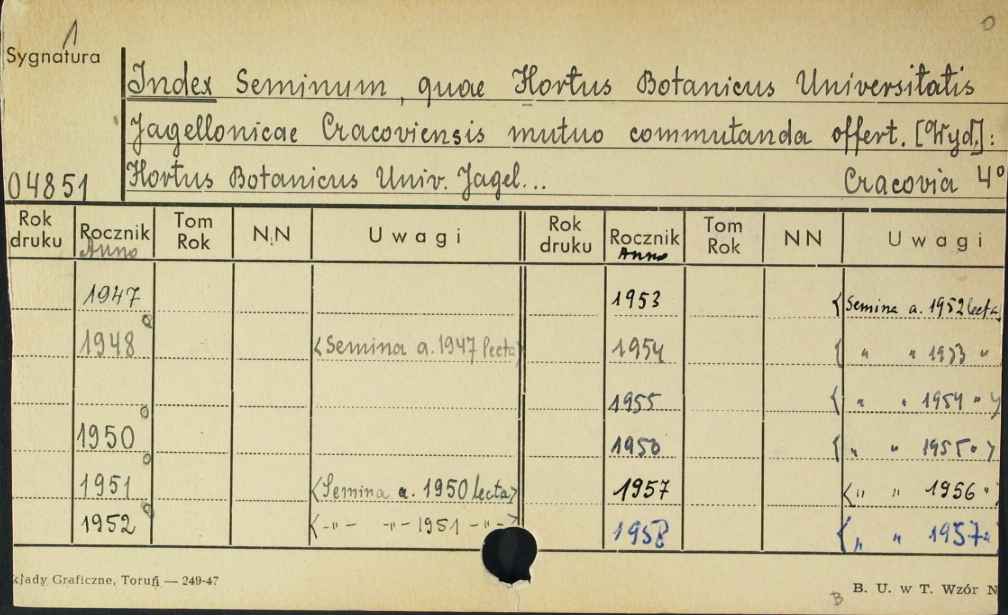 1
0
Sygnatura
Index Seminum, quae Hortus Botanicus Universitatis
Jagellonicae Cracoviensis mutuo commutanda offert. [Wyd.]:
04851 Hortus Botanicus Univ. Jagel... Cracovia 4°
Rok druku Rocznik Anno Tom Rok N.N Uwagi Rok druku Rocznik Anno Tom Rok NN Uwagi
1947 1953 {Semina a. 1952 lecta}
1948 <Semina a. 1947 lecta> 1954 { " " 1953 "
1955 { " " 1954 " }
1950 1956 { " " 1955 " }
1951 <Semina a. 1950 lecta> 1957 < " " 1956 "
1952 < -"- -"- 1951 -"- > 1958 { " " 1957 "
kłady Graficzne, Toruń — 249-47
B
B. U. w T. Wzór N